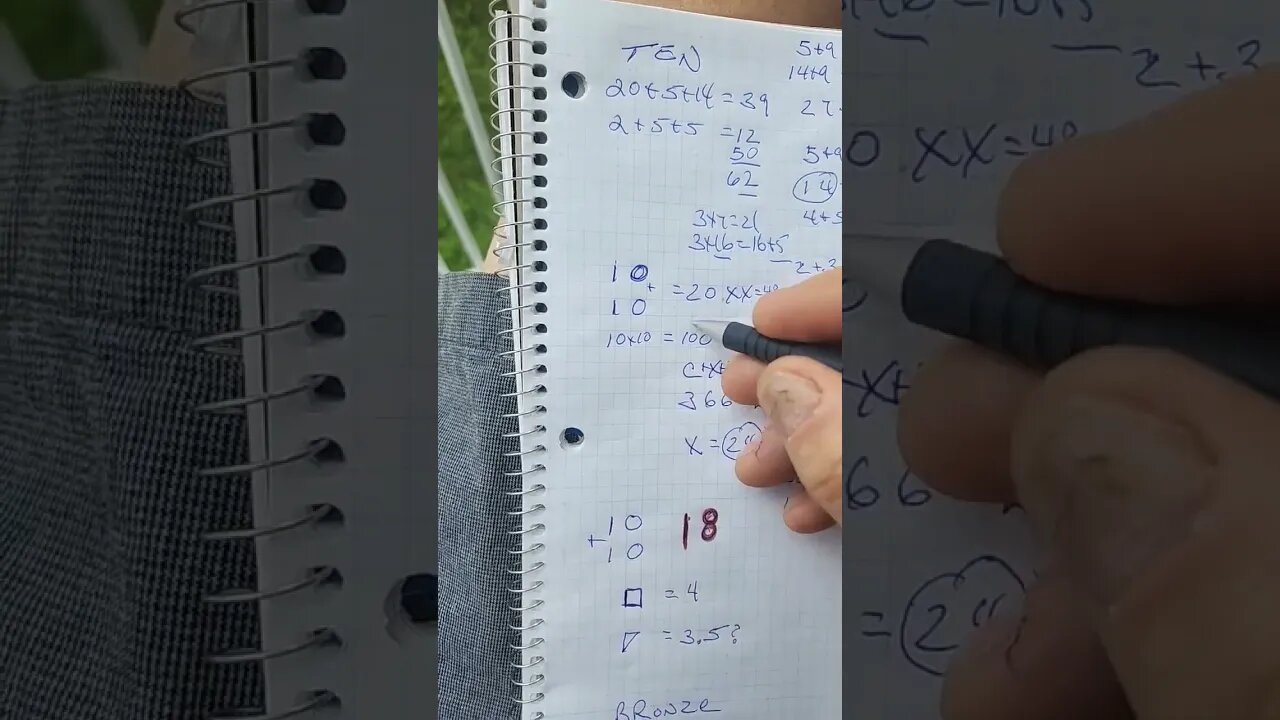 TEN
20+5+14=39
2+5+5 =12
50
62
5+9
14+9
27
5+9
14
4+5
3x7=21
3+16=16+5
2+3
10
+
10
=20 XX=40
10x10 =100
C+X+
366
X=24
10 18
+10
□ =4
=3.5?
BRONZE